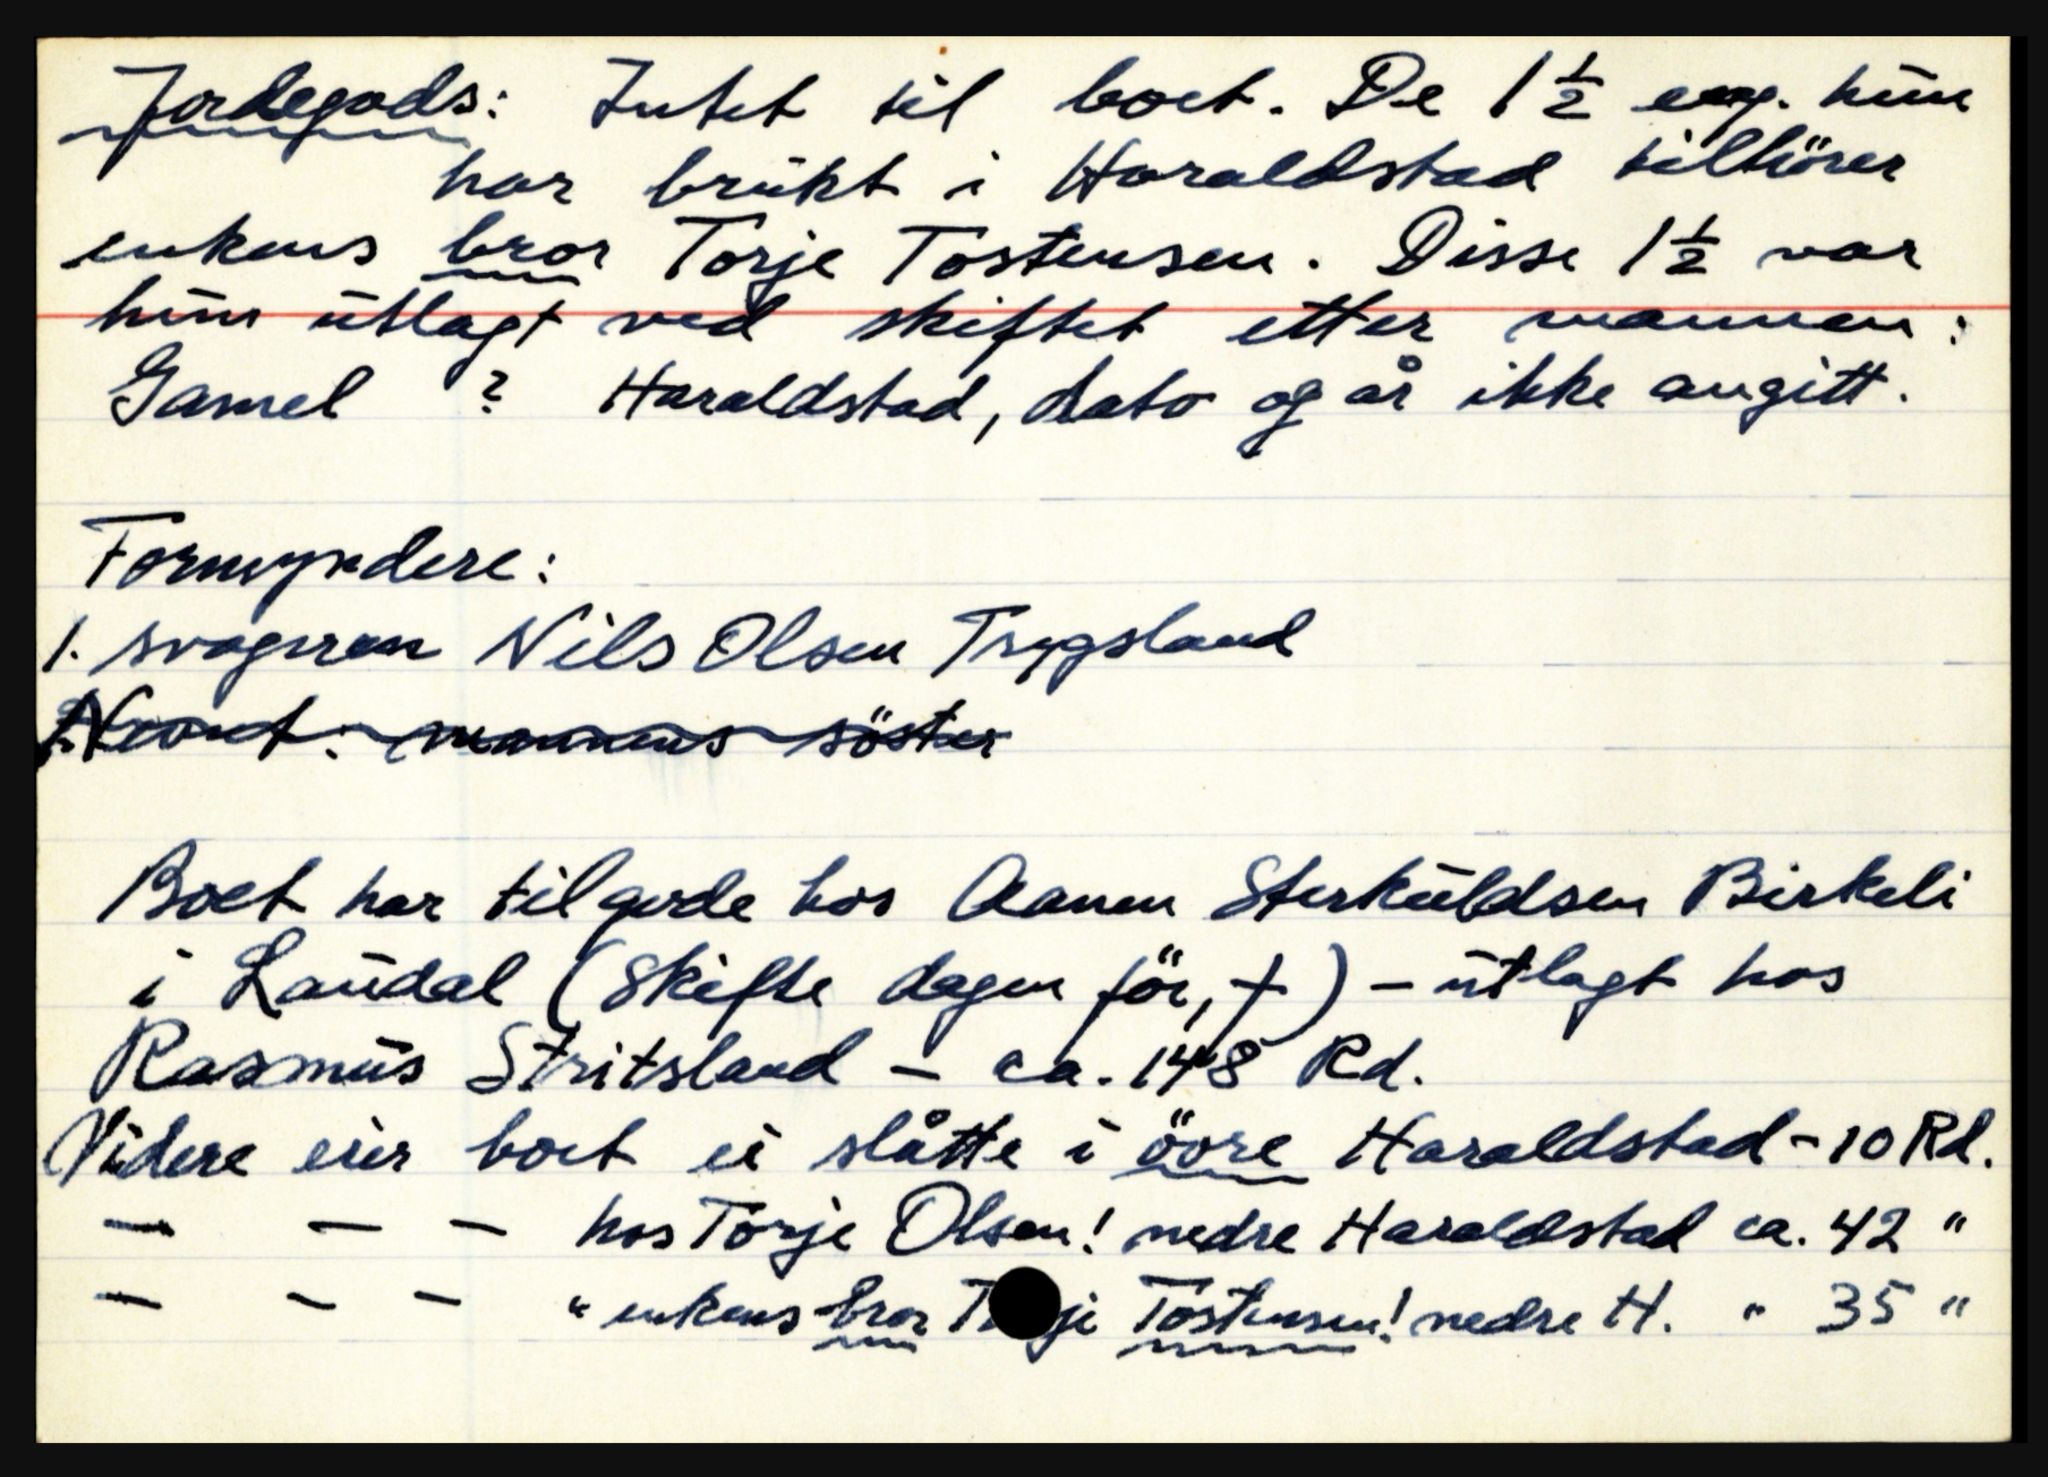 Jordegods: Intet til boet. De 1 1/2 eng. hun
har brukt i Haraldstad tilhörer
enkens bror Torje Tostensen. Disse 1 1/2 var
hun utlagt ved skiftet etter mannen:
Gamel ? Haraldstad, dato og år ikke angitt.
Formyndere:
1. svogeren Nils Olsen Trygsland
mannens söster
Boet har tilgode hos Aanen Sterkuldsen Birkeli
i Laudal (skifte dagen för, +) - utlagt hos
Rasmus Stritsland - ca. 148 Rd.
Videre eier boet ei slåtte i övre Haraldstad - 10 Rd.
— — — hos Torje Olsen! nedre Haraldstad ca. 42 "
— — — " enkens bror Torje Tostensen! nedre H. " 35 "